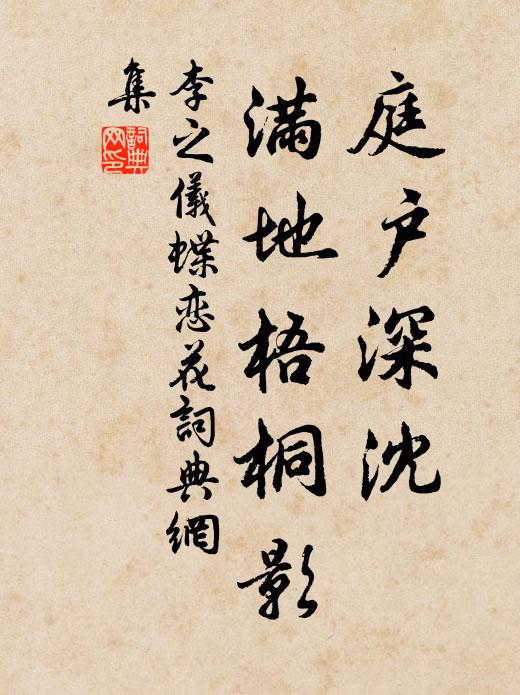 庭户深沈
满地梧桐影
李之儀蝶恋花詞典網
集
詞典
网印